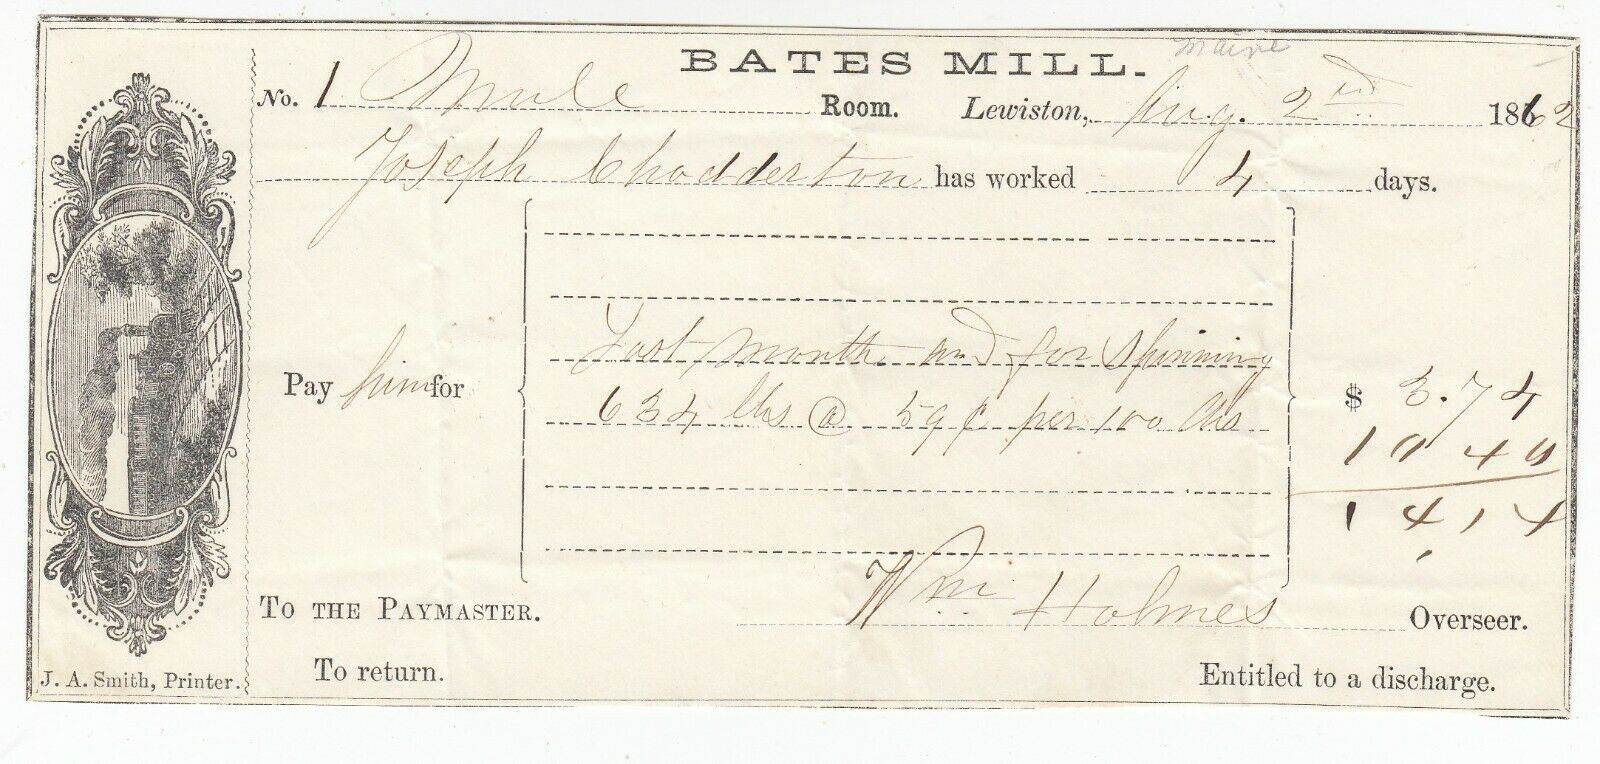 BATES MILL. Maine
No. 1 Mule Room. Lewiston, Aug. 2nd 1862
Joseph Chadderton has worked 4 days.
Last month and for Spinning
Pay him for 634 lbs @ 59¢ per 100 lbs $ 3.74
10 40
14,14
To the Paymaster. Wm Holmes Overseer.
To return. Entitled to a discharge.
J. A. Smith, Printer.